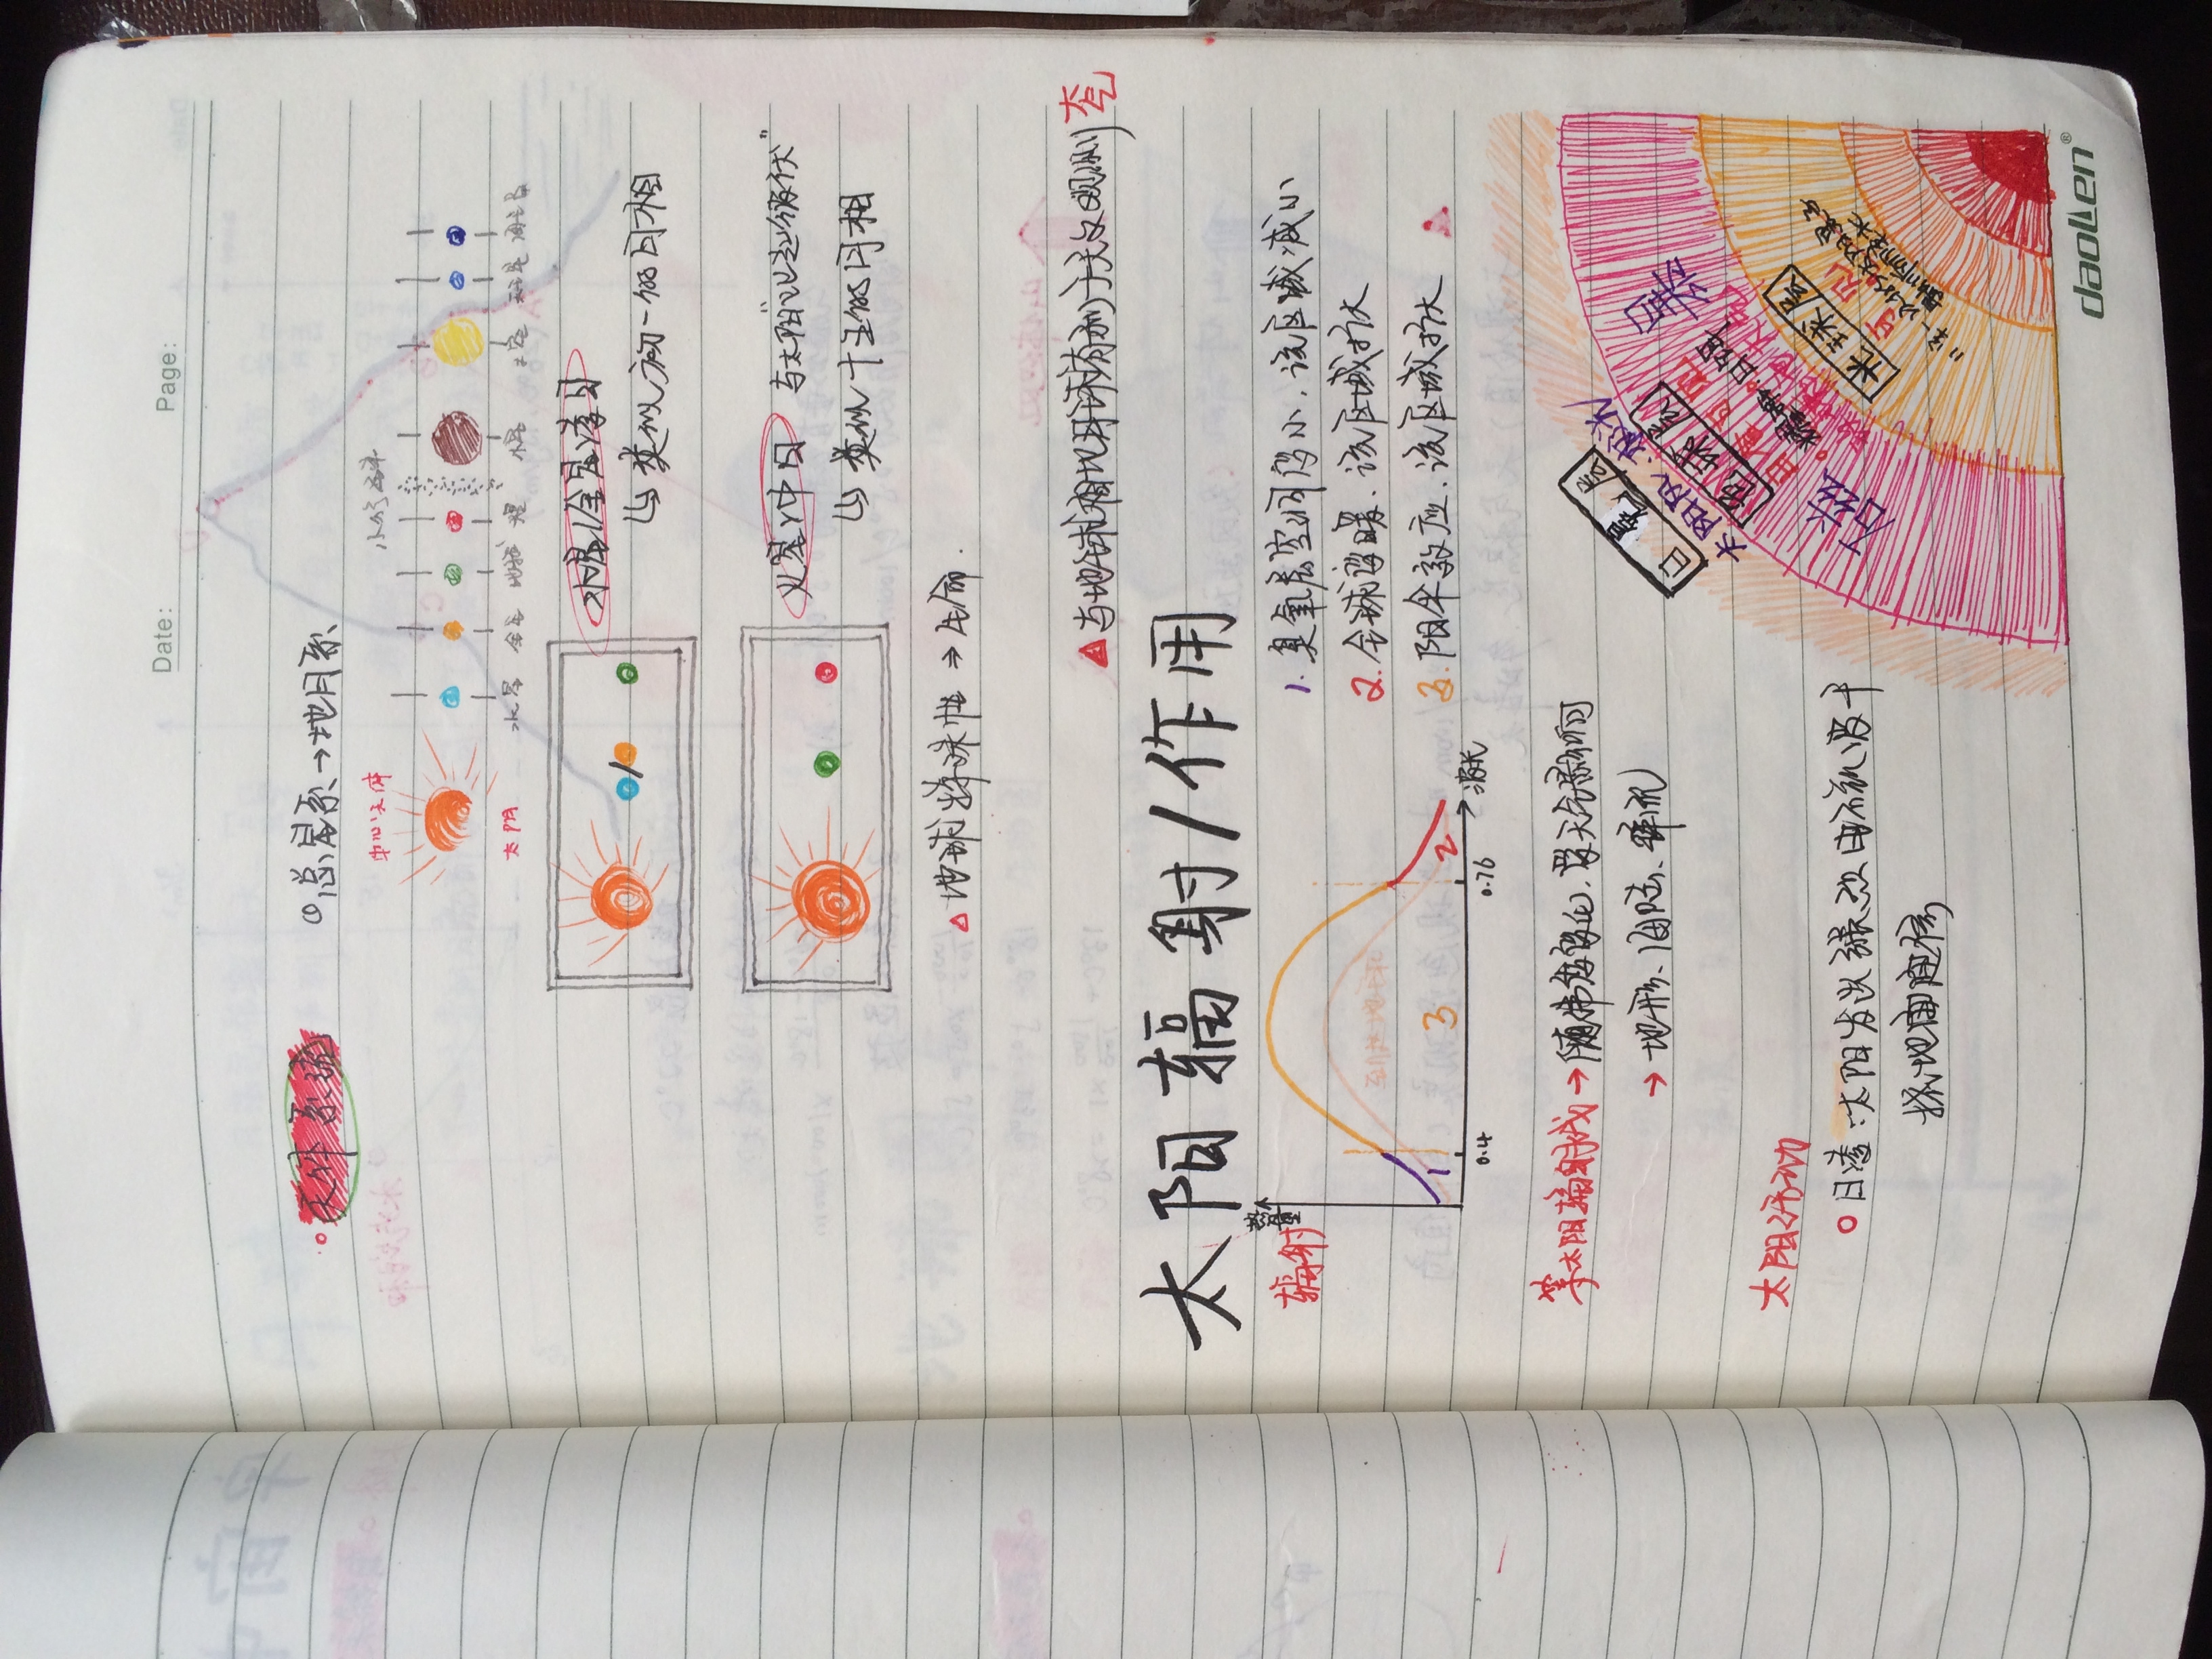 Date: Page:
天体系统 ①总星系→地月系
中心天体 小行星带
太阳 水星 金星 地球 火星 木星 土星 天王星 海王星
水星/金星凌日
↳ 类似初一的月相
火星冲日 与太阳"此起彼伏"
↳ 类似十五的月相
△地球特殊性→生命.
△与地球相比月球有利于天文观测 大气
太阳辐射/作用
热量
辐射
到达地球
1 3 2
0.4 0.76 波长
1. 臭氧层空洞变小,该区域减小
2. 全球变暖,该区域扩大
3. 阳伞效应,该区域扩大
等太阳辐射线→随纬度变化,受天气影响
→地形、海陆、洋流
太阳活动
日凌:太阳发出强烈电磁波干
扰地面通信
日冕层
太阳风:极光
色球层
日珥
耀斑
磁暴
光球层
可见
太阳黑子
daoLen®